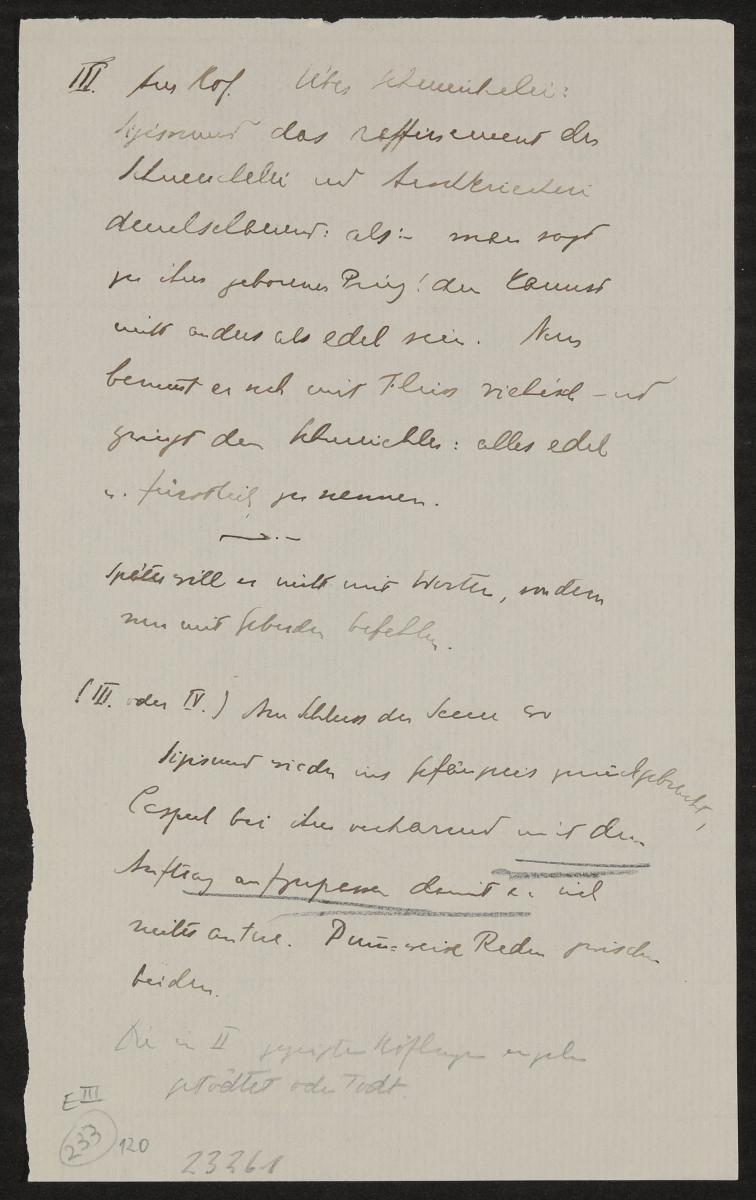 III. Am Hof. Über Schmeichelei:
Sigismund das raffinement der
Schmeichelei und Arschkriecherei
: als:– man sagt
zu ihm geborener Prinz! du kannst
nicht anders als edel sein. Nun
benimmt er sich mit Fleiss viehisch – und
zwingt den Schmeichler: alles edel
u. fürstlich zu nennen.
später will er nicht mit Worten, sondern
nur mit Geberden befehlen.
(III. oder IV.) Am Schluss der Scene wo
Sigismund wieder ins Gefängnis zurückgebracht,
bei ihm verharrend mit dem
Auftrag aufzupassen damit er sich
nichts antue. Dumm=weise Reden zwischen
beiden.
Die in II gezeigten Höflinge
getödtet oder Todt.
E III
233 120
23261